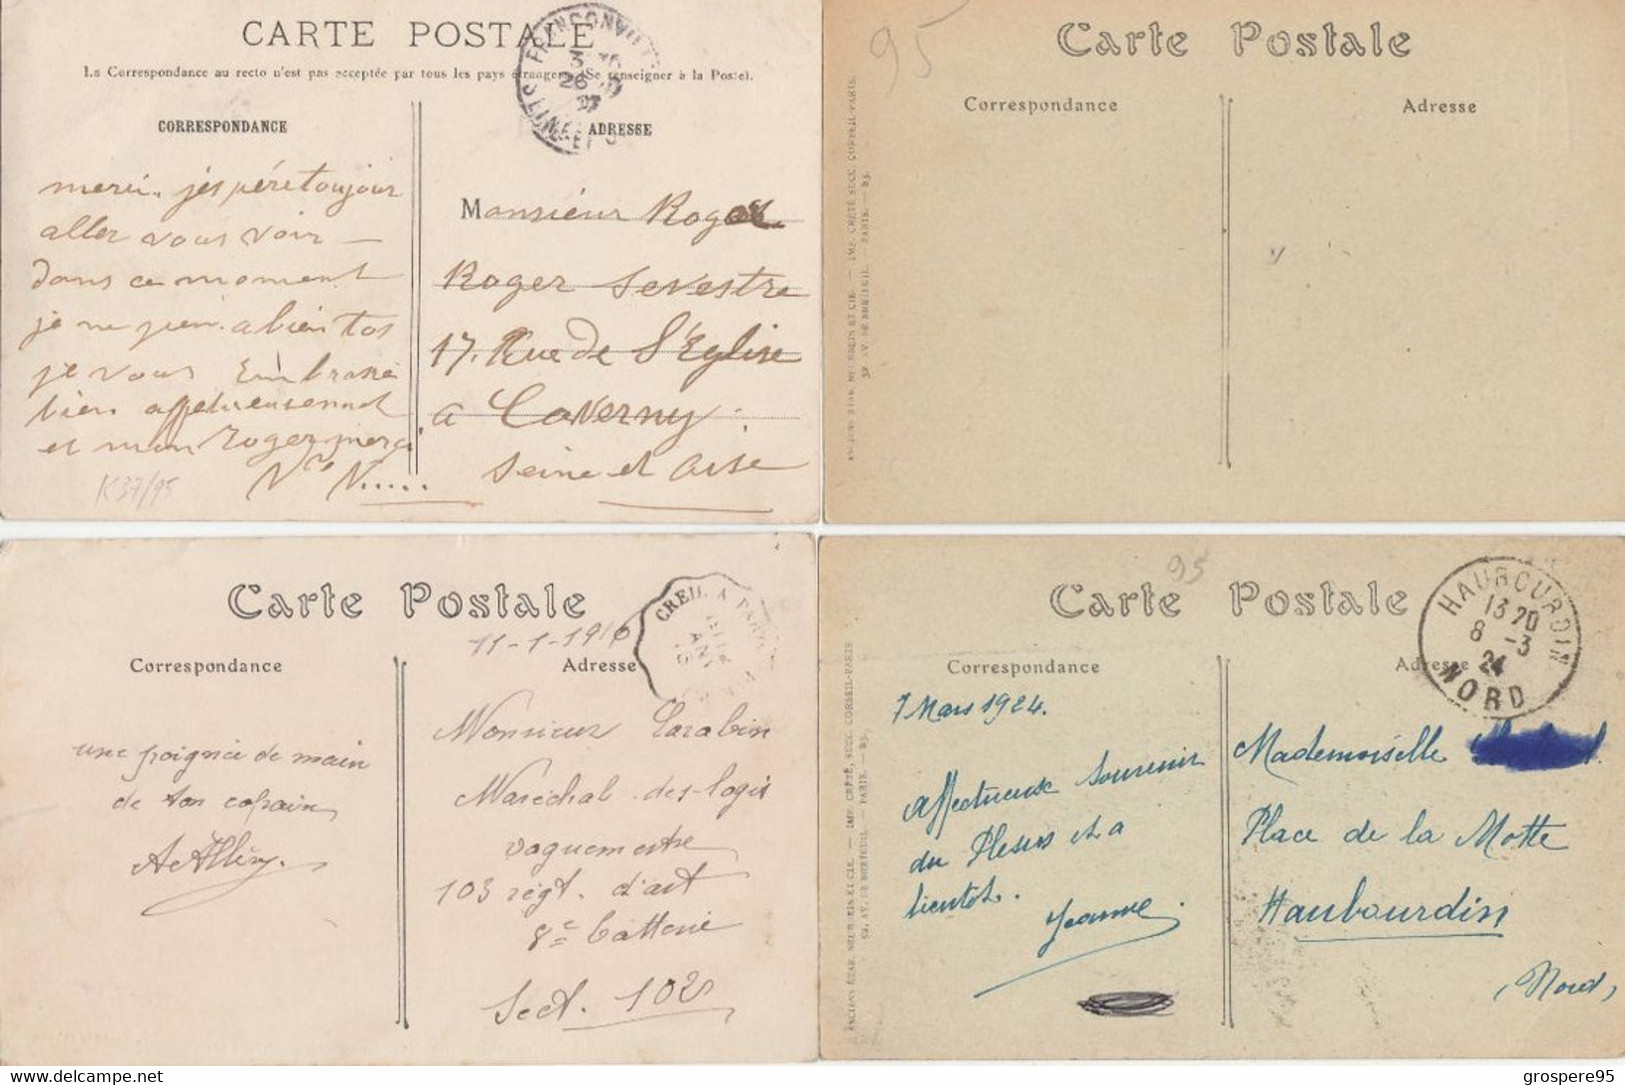 CARTE POSTALE
La Correspondance au recto n'est pas acceptée par tous les pays étrangers (Se renseigner à la Poste).
CORRESPONDANCE
ADRESSE
merci. jespére toujour
aller vous voir —
dans ce moment
je ne bien tos
je vous Embrasse
bien affectueusement
et mon Roger merci
K37/95
Monsieur Roger
Roger Sevestre
17, Rue de l'Eglise
a Taverny.
Seine et Oise
95
Carte Postale
Correspondance
Adresse
ANCIENS ETAB. NEURDEIN ET CIE. — IMP. CRÉTÉ, SUCC. CORBEIL-PARIS.
52, AV. DE BRETEUIL. — PARIS. — B3.
Carte Postale
11-1-1916
CREIL A PARIS
Correspondance
Adresse
une poignée de main
de ton copain
Monsieur Larabin
Maréchal-des-logis
vaguemestre
103 régt. d'art
8e batterie
Sect. 102
95
Carte Postale
HAUBOURDIN
13 20
8 -3
24
NORD
Correspondance
Adresse
ANCIENS ÉTAB. NEURDEIN ET CIE. — IMP. CRÉTÉ, SUCC. CORBEIL-PARIS
52, AV. DE BRETEUIL. — PARIS. — B3.
7 Mars 1924.
Affectueux Souvenir
du Plessis et a
bientot.
Jeanne.
Mademoiselle
Place de la Motte
Haubourdin
(Nord)
Delcampe.net
grospere95